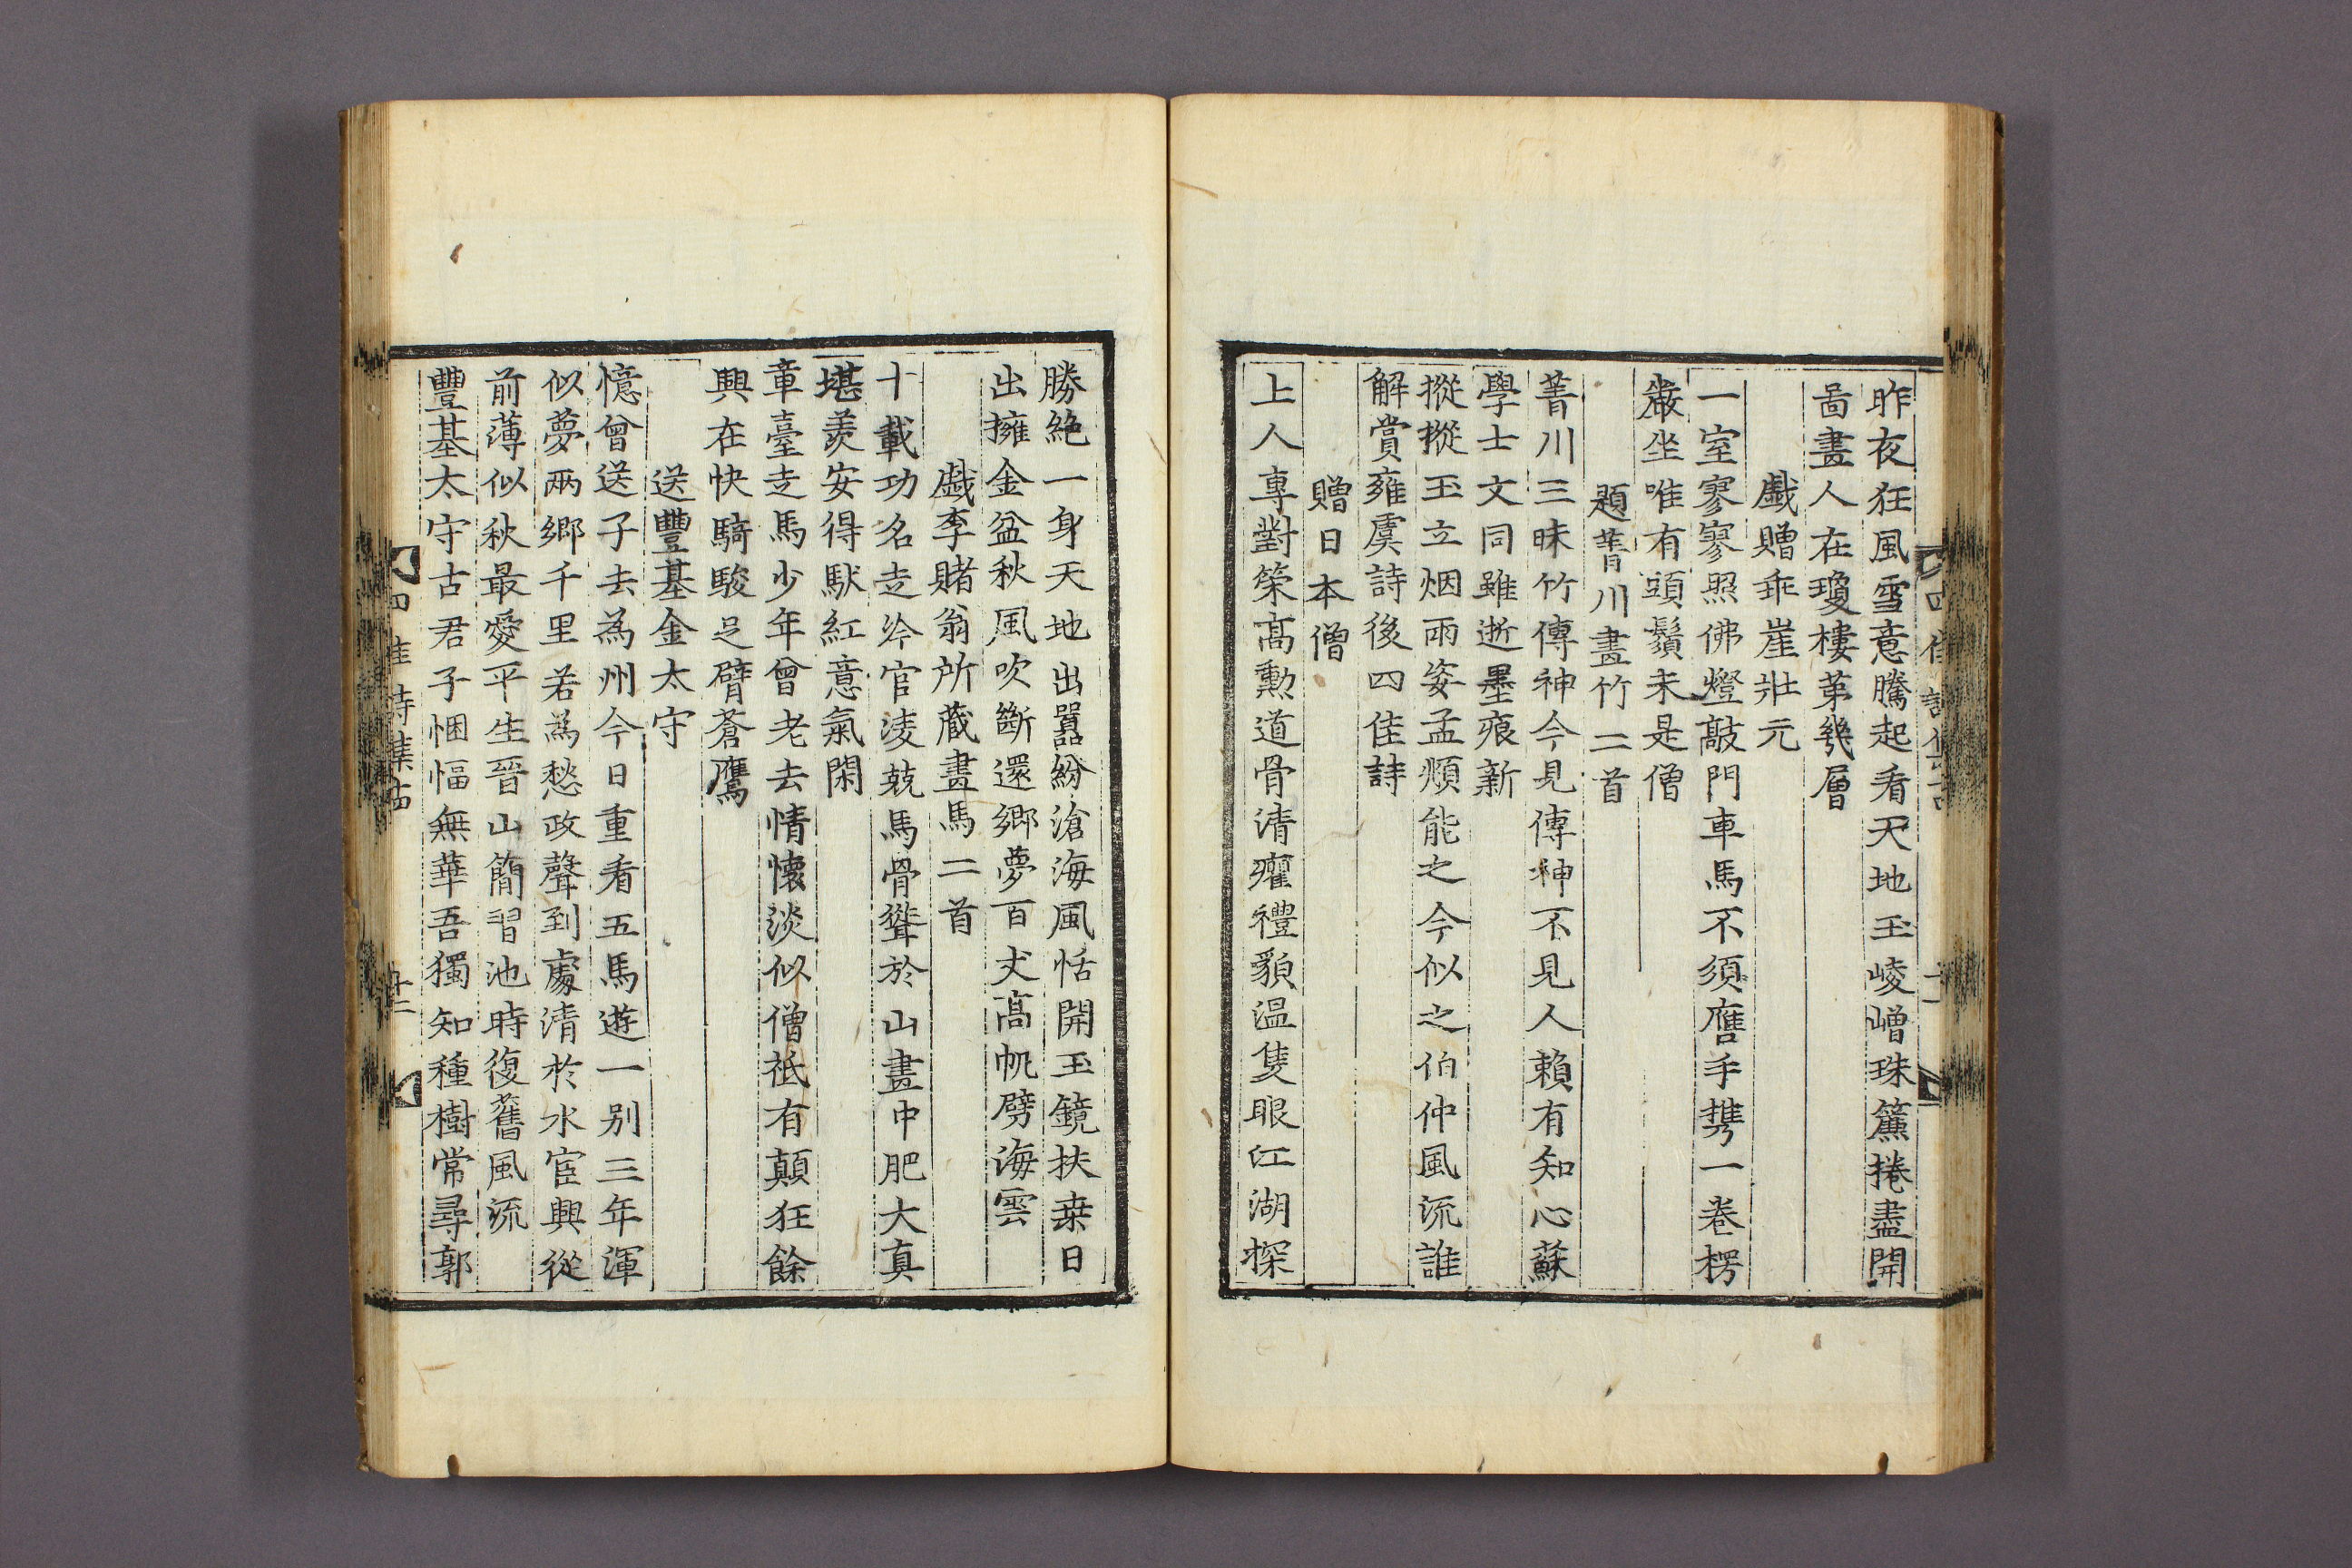 昨夜狂風雪意騰起看天地玉崚嶒珠簾捲盡開
啚畫人在瓊樓第幾層
戲贈乖崖壯元
一室寥寥照佛燈敲門車馬不須譍手携一卷楞
嚴坐唯有頭鬚未是僧
題菁川畫竹二首
菁川三昧竹傳神今見傳神不見人賴有知心蘇
學士文同雖逝墨痕新
摐摐玉立烟雨姿孟頫能之今似之伯仲風流誰
解賞雍虞詩後四佳詩
贈日本僧
上人專對策高勲道骨清癯禮貌温隻眼江湖探
勝絶一身天地出囂紛滄海風恬開玉鏡扶桒日
出擁金盆秋風吹斷還鄉夢百丈高帆劈海雲
戱李賭翁所蔵畫馬二首
十載功名走冷官凌兢馬骨聳於山畫中肥大真
堪羨安得馱紅意氣閑
章臺走馬少年曾老去情懷淡似僧祗有顛狂餘
興在快騎駿足臂蒼鷹
送豐基金太守
憶曾送子去為州今日重看五馬遊一别三年渾
似夢兩鄉千里若為愁政聲到處清於水宦興從
前薄似秋最愛平生晉山簡習池時復舊風流
豐基太守古君子悃愊無華吾獨知種樹常尋郭
四佳詩集